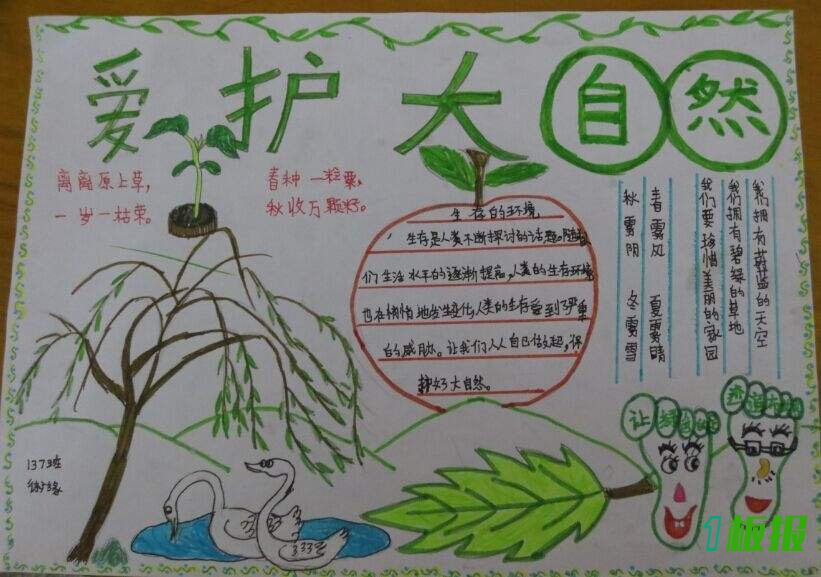 爱护大自然
离离原上草,
一岁一枯荣。
春种一粒粟,
秋收万颗籽。
生存的环境
生存是人类不断探讨的话题。随着人
们生活水平的逐渐提高,人类的生存环境
也在悄悄地发生变化,人类的生存受到了严重
的威胁。让我们人人自己做起,保
护好大自然。
我们拥有蔚蓝的天空
我们拥有碧绿的草地
我们要珍惜美丽的家园
春雾风 夏雾晴
秋雾阴 冬雾雪
让绿色
1373班
1板报